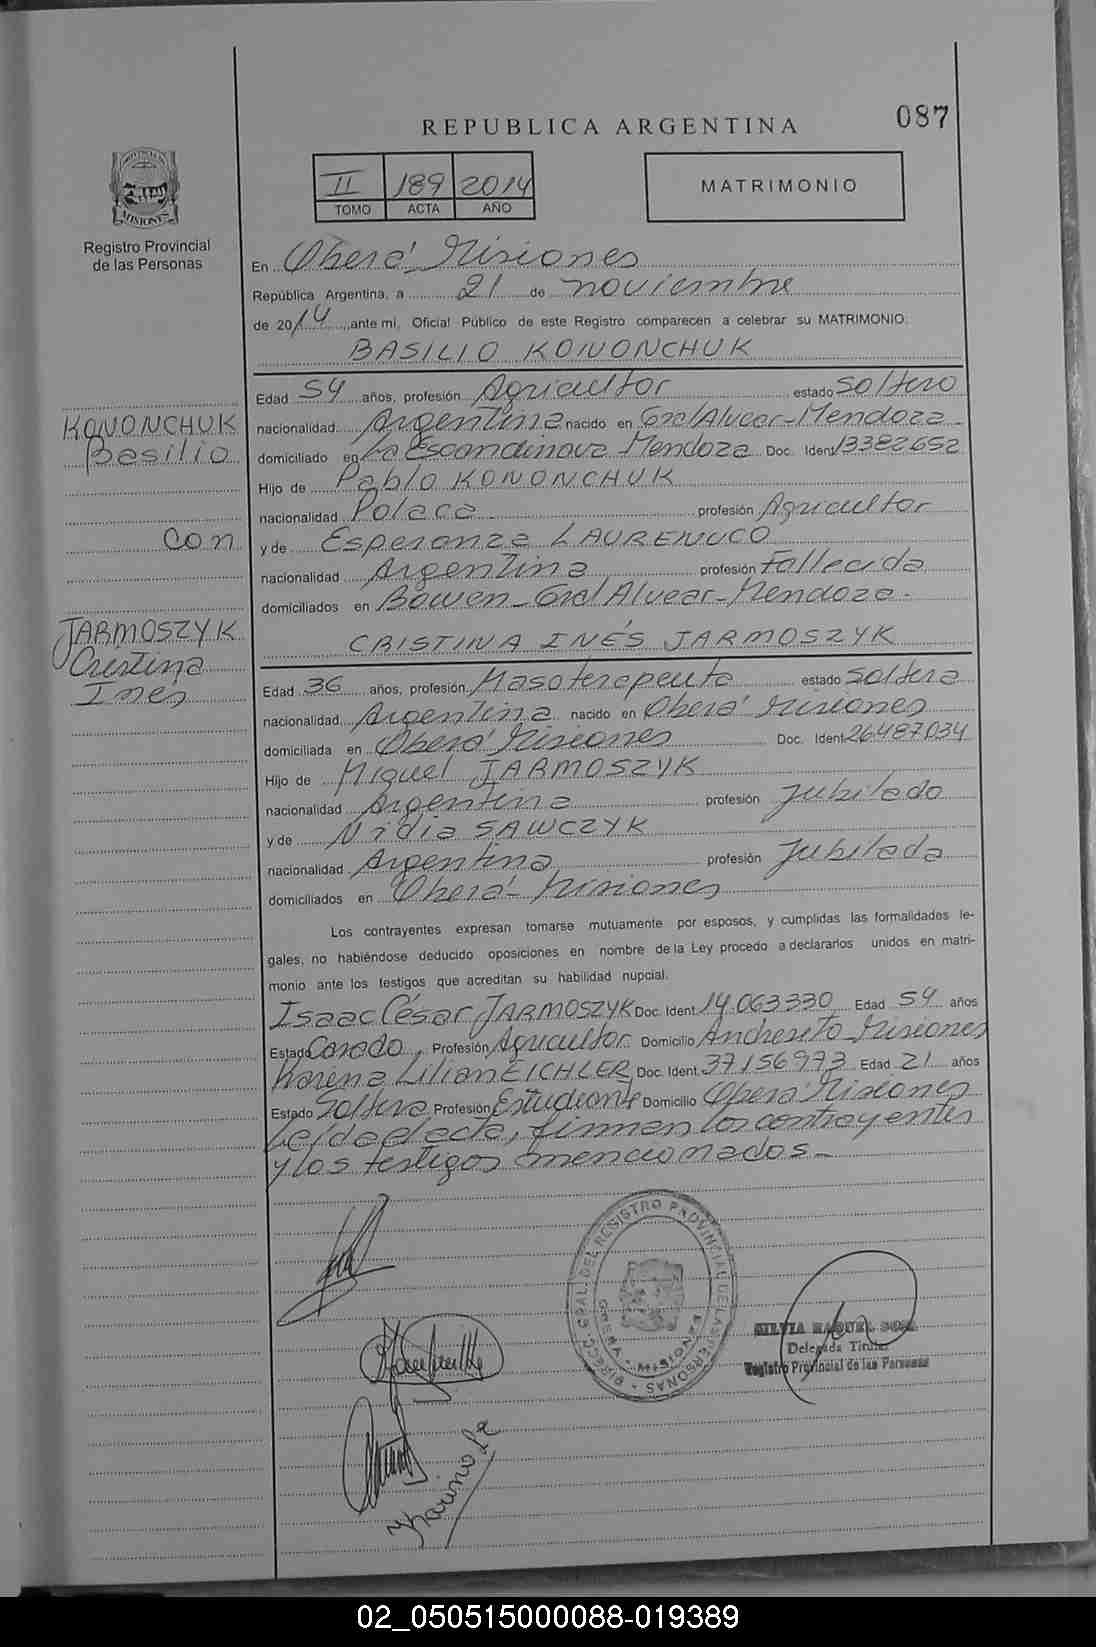 087
REPUBLICA ARGENTINA
II 189 2014
TOMO ACTA AÑO
MATRIMONIO
PROVINCIA DE
MISIONES
Registro Provincial
de las Personas
En Oberá Misiones
República Argentina, a 21 de noviembre
de 2014, ante mi, Oficial Público de este Registro comparecen a celebrar su MATRIMONIO:
BASILIO KONONCHUK
Edad 54 años, profesión Agricultor estado Soltero
nacionalidad Argentina nacido en Gral Alvear-Mendoza
domiciliado en La Escandinava Mendoza Doc. Ident 13382652
Hijo de Pablo KONONCHUK
nacionalidad Polaca profesión Agricultor
y de Esperanza LAURENUCO
nacionalidad Argentina profesión Fallecida
domiciliados en Bowen-Gral Alvear-Mendoza-
KONONCHUK
Basilio
con
JARMOSZYK
Cristina
Ines
CRISTINA INÉS JARMOSZYK
Edad 36 años, profesión Masoterapeuta estado Soltera
nacionalidad Argentina nacido en Oberá Misiones
domiciliada en Oberá Misiones Doc. Ident 26487034
Hijo de Miguel JARMOSZYK
nacionalidad Argentina profesión Jubilado
y de Nidia SAWCZYK
nacionalidad Argentina profesión Jubilada
domiciliados en Oberá-Misiones
Los contrayentes expresan tomarse mutuamente por esposos, y cumplidas las formalidades le-
gales, no habiéndose deducido oposiciones en nombre de la Ley procedo a declararlos unidos en matri-
monio ante los testigos que acreditan su habilidad nupcial.
Isaac César JARMOSZYK Doc. Ident. 14.063330 Edad 54 años
Estado Casado, Profesión Agricultor Domicilio Andresito-Misiones
Karena Lilian EICHLER Doc. Ident. 37156973 Edad 21 años
Estado Soltera Profesión Estudiante Domicilio Oberá Misiones
Leída el acta, firman los contrayentes
y los testigos mencionados.-
DIRECC. GRAL. DEL REGISTRO PROVINCIAL DE LAS PERSONAS
MISIONES
SILVIA RAQUEL SOSA
Delegada Titular
Registro Provincial de las Personas
02_050515000088-019389